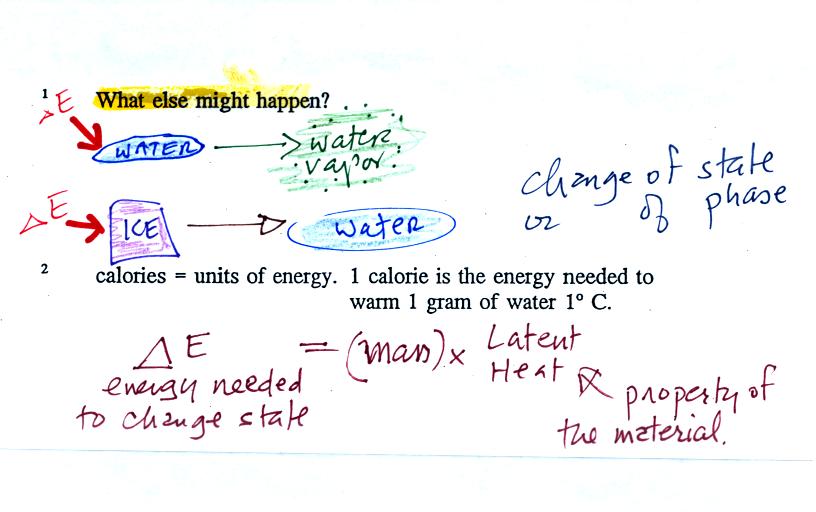 1 What else might happen?
ΔE
WATER → water
vapor
ΔE
ICE → water
change of state
or of phase
2 calories = units of energy. 1 calorie is the energy needed to
warm 1 gram of water 1° C.
ΔE = (mass) x Latent
Heat
energy needed
to change state
property of
the material.